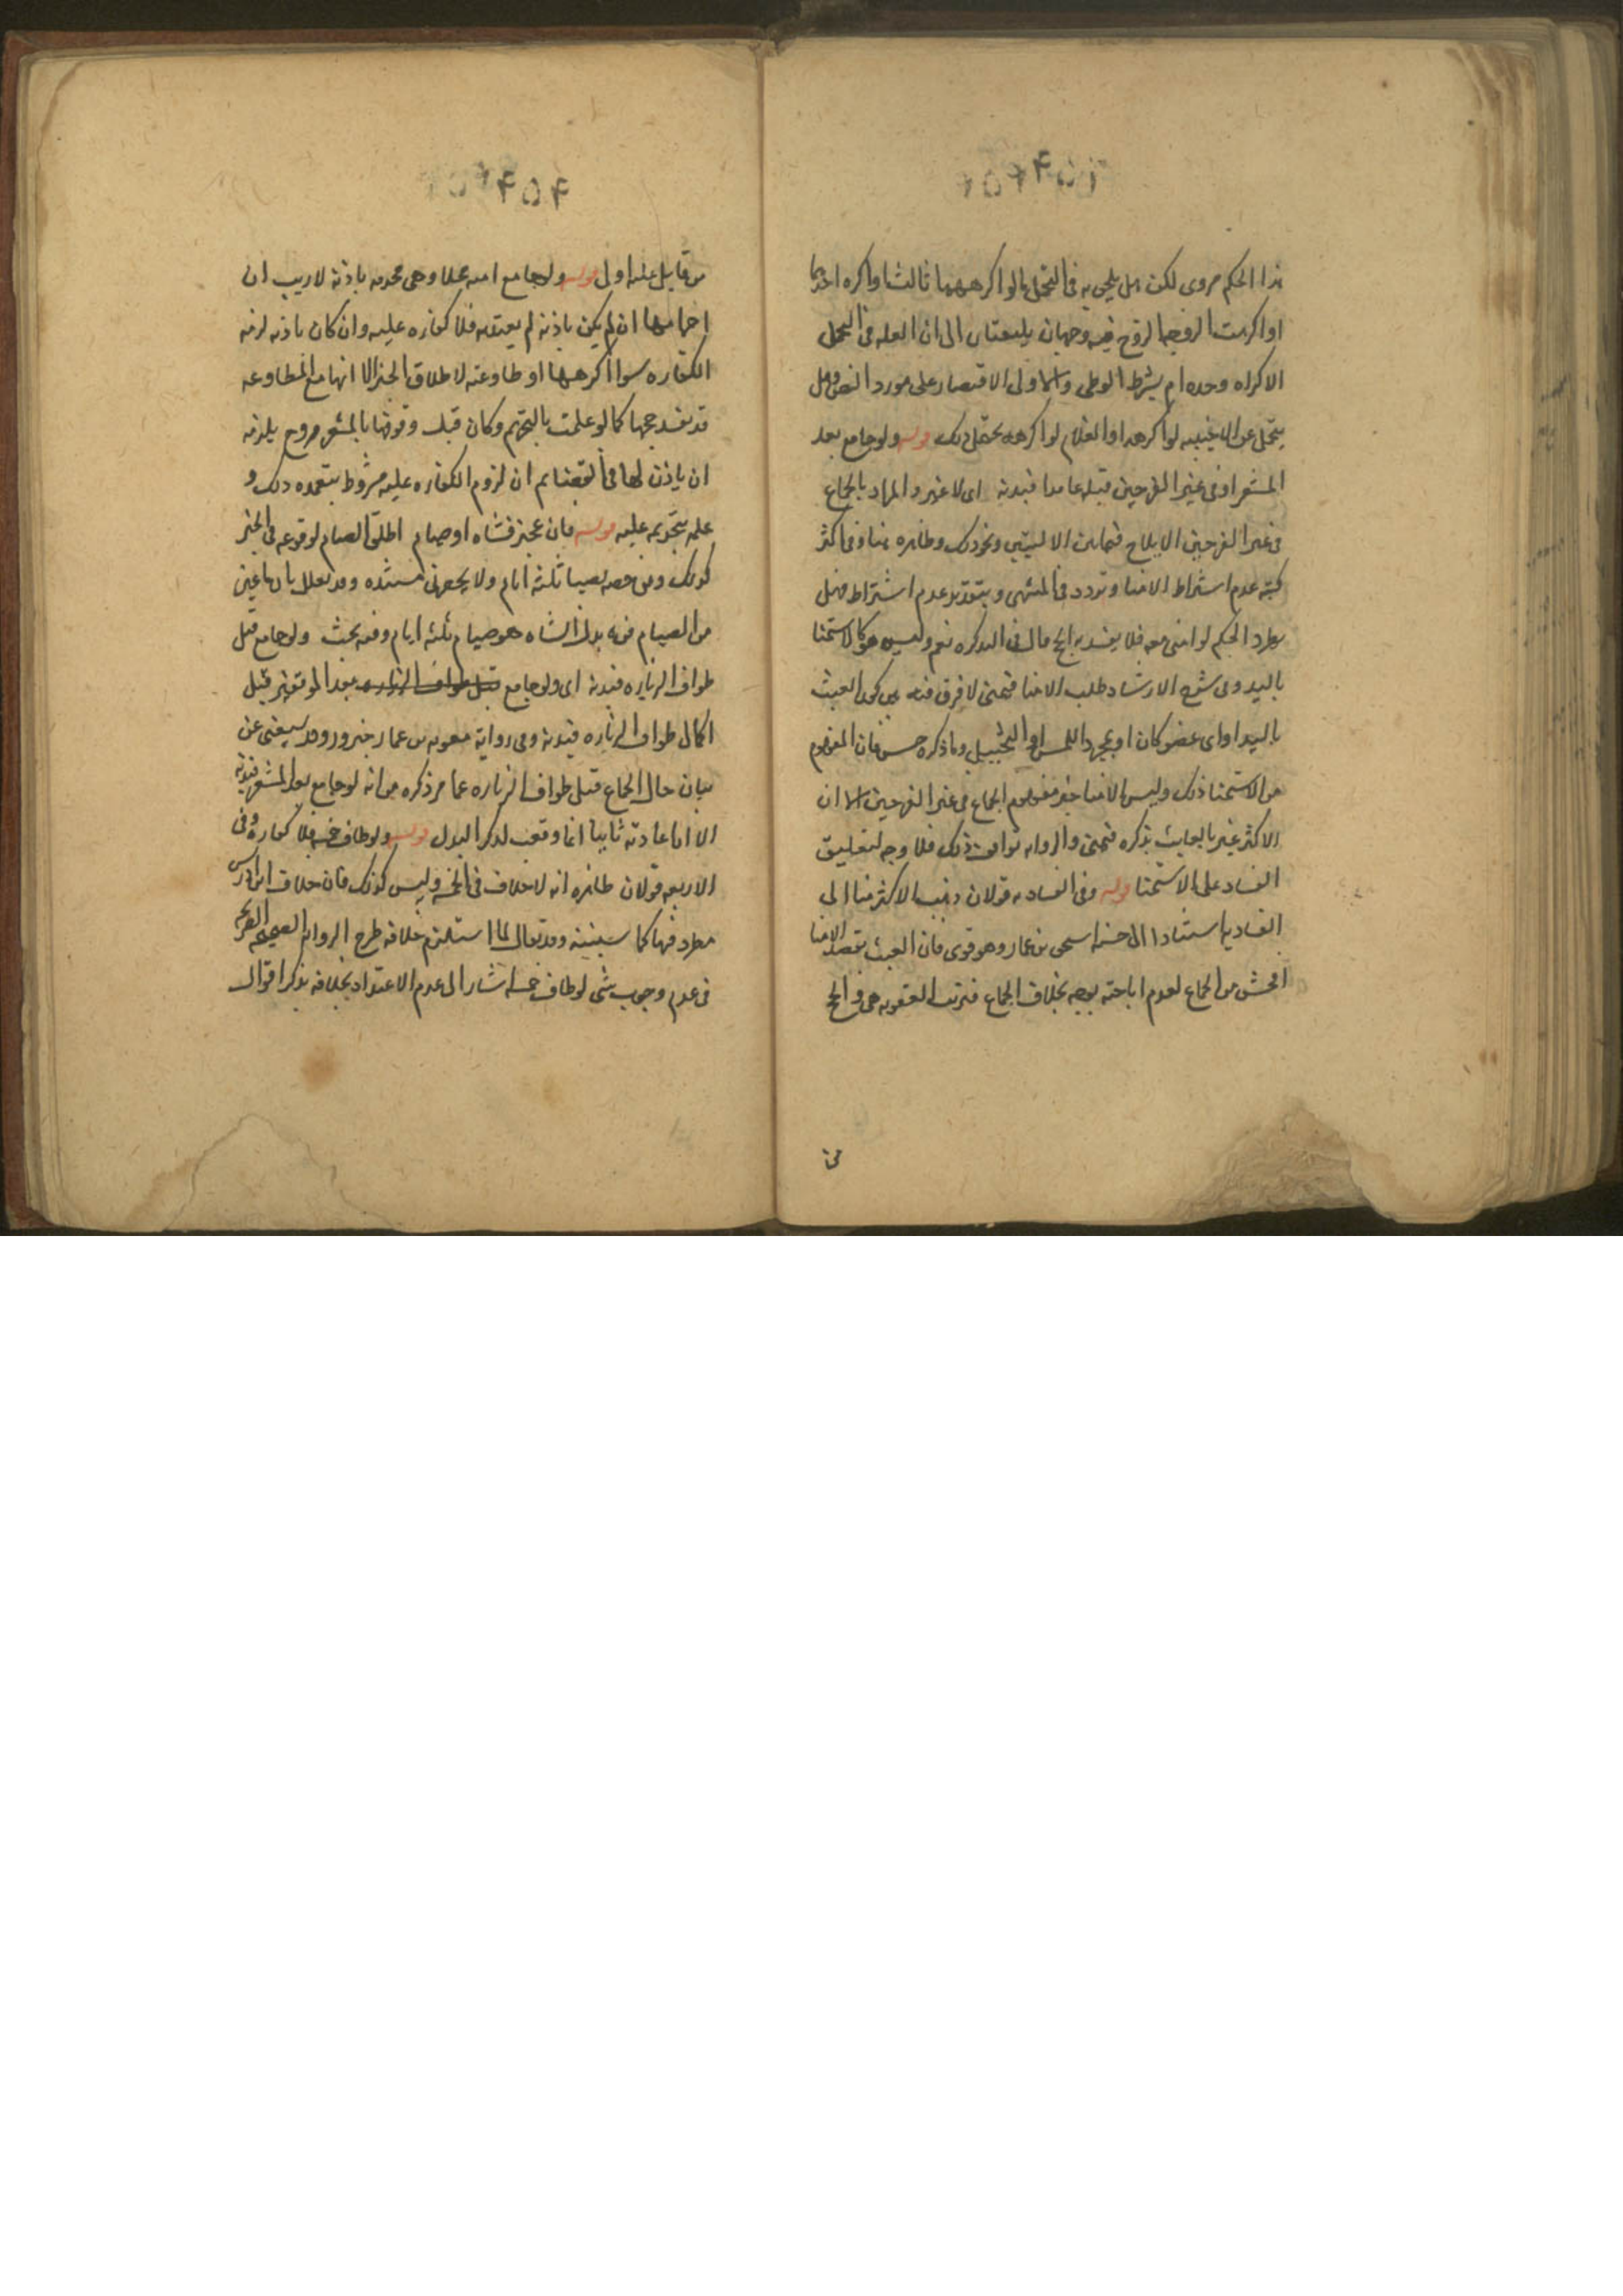 هذا الحكم مروى لكن هل يلحق به فى التحمل ما لو اكرههما ثالث او اكره احدهما
او اكرهت الزوجه الزوج فيه وجهان يلتفتان الى ان العله فى التحمل
الاكراه وحده ام بشرط الوطى والاولى الاقتصار على مورد النص وهل
يتحمل عن الاجنبيه لو اكرهها او الغلام لو اكرهه يحتمل ذلك قوله ولو جامع بعد
المشعر او فى غير الفرجين قبله عامدا فبدنه اى لا غير والمراد بالجماع
فى غير الفرجين الايلاج فيما بين الاليتين ونحو ذلك وظاهره هنا وفى اكثر
كتبه عدم اشتراط الامنا وتردد فى المنتهى وبتقدير عدم اشتراطه فهل
يطرد الحكم لو امنى معه فلا يفسد به الحج قال فى التذكره نعم وليس هو كالاستمنا
باليد وفى شرح الارشاد طلب الامنا فحينئذ لا فرق فيه بين كون العبث
باليد او اى عضو كان او بمجرد اللمس او التخييل وما ذكره حسن فان المفهوم
من الاستمنا ذلك وليس الامنا جزء مفهوم الجماع فى غير الفرجين الا ان
الاكثر عبر بالعابث بذكره فيمنى والروايه توافق ذلك فلا وجه لتعليق
الفساد على الاستمنا قوله وفى الفساد به قولان ذهب الاكثر منا الى
الفساد به استنادا الى حسنه اسحق بن عمار وهو قوى فان العبث بقصد الامنا
افحش من الجماع لعدم اباحته بوجه بخلاف الجماع فترتب العقوبه هى فى الحج
من
۴۵۴
من قابل عليه اولى قوله ولو جامع امته محلا وهى محرمه باذنه لا ريب ان
احرامها ان لم يكن باذنه لم ينعقد فلا كفاره عليه وان كان باذنه لزمه
الكفاره سوا اكرهها او طاوعته لاطلاق الخبر الا انها مع المطاوعه
قد يفسد حجها كما لو علمت بالتحريم وكان قبل وقوفها بالمشعر وح يلزمه
ان ياذن لها فى القضا ثم ان لزوم الكفاره عليه مشروط بتعمده ذلك و
علمه بتحريمه عليه قوله فان عجز فشاه او صيام اطلق الصيام لوقوعه فى الخبر
كذلك وبعض خصه بصيام ثلثه ايام ولا يحضرنى مستنده وقد يعلل بان ما عين
من الصيام فيه بدل الشاه هو صيام ثلثه ايام وفيه بحث ولو جامع قبل
طواف الزياره فبدنه اى ولو جامع بعد الموقفين قبل
اكمال طواف الزياره فبدنه وفى روايه معويه بن عمار جزور وقد يستغنى عن
بيان حال الجماع قبل طواف الزياره عما مر ذكره من انه لو جامع بعد المشعر فبدنه
الا ان اعادته ثانيا انما وقعت لذكر البدل قوله ولو طاف خمسه فلا كفاره وفى
الاربعه قولان ظاهره انه لا خلاف فى الخمسه وليس كذلك فان خلاف ابن ادريس
مطرد فيها كما سنبينه وقد يقال لما استلزم خلافه طرح الروايه الصحيحه الصريحه
فى عدم وجوب شى لو طاف خمسه اشار الى عدم الاعتداد بخلافه بذكر اقوال